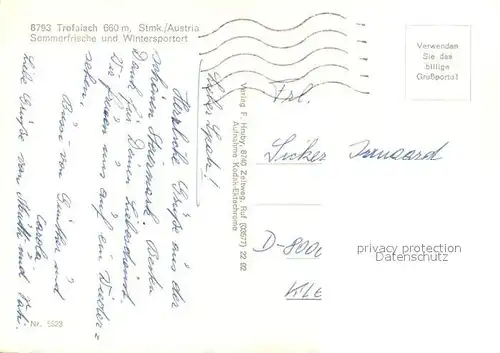 8793 Trofaiach 660 m, Stmk./Austria
Sommerfrische und Wintersportort
Verwenden
Sie das
billige
Grußporto!
Herzliche Grüße aus der
schönen Steiermark. Besten
Dank für Deinen
Wir freuen uns auf ein Wieder=
sehen.
von Günther und
Carola
Liebe Grüße von Mutti und Vati.
Verlag F. Hruby, 8740 Zeltweg, Ruf (03577) 22 82
Aufnahme Kodak-Ektachrome
Frl.
Sicker Irmgard
D-8000
KLE
privacy protection
Datenschutz
Nr. 5523